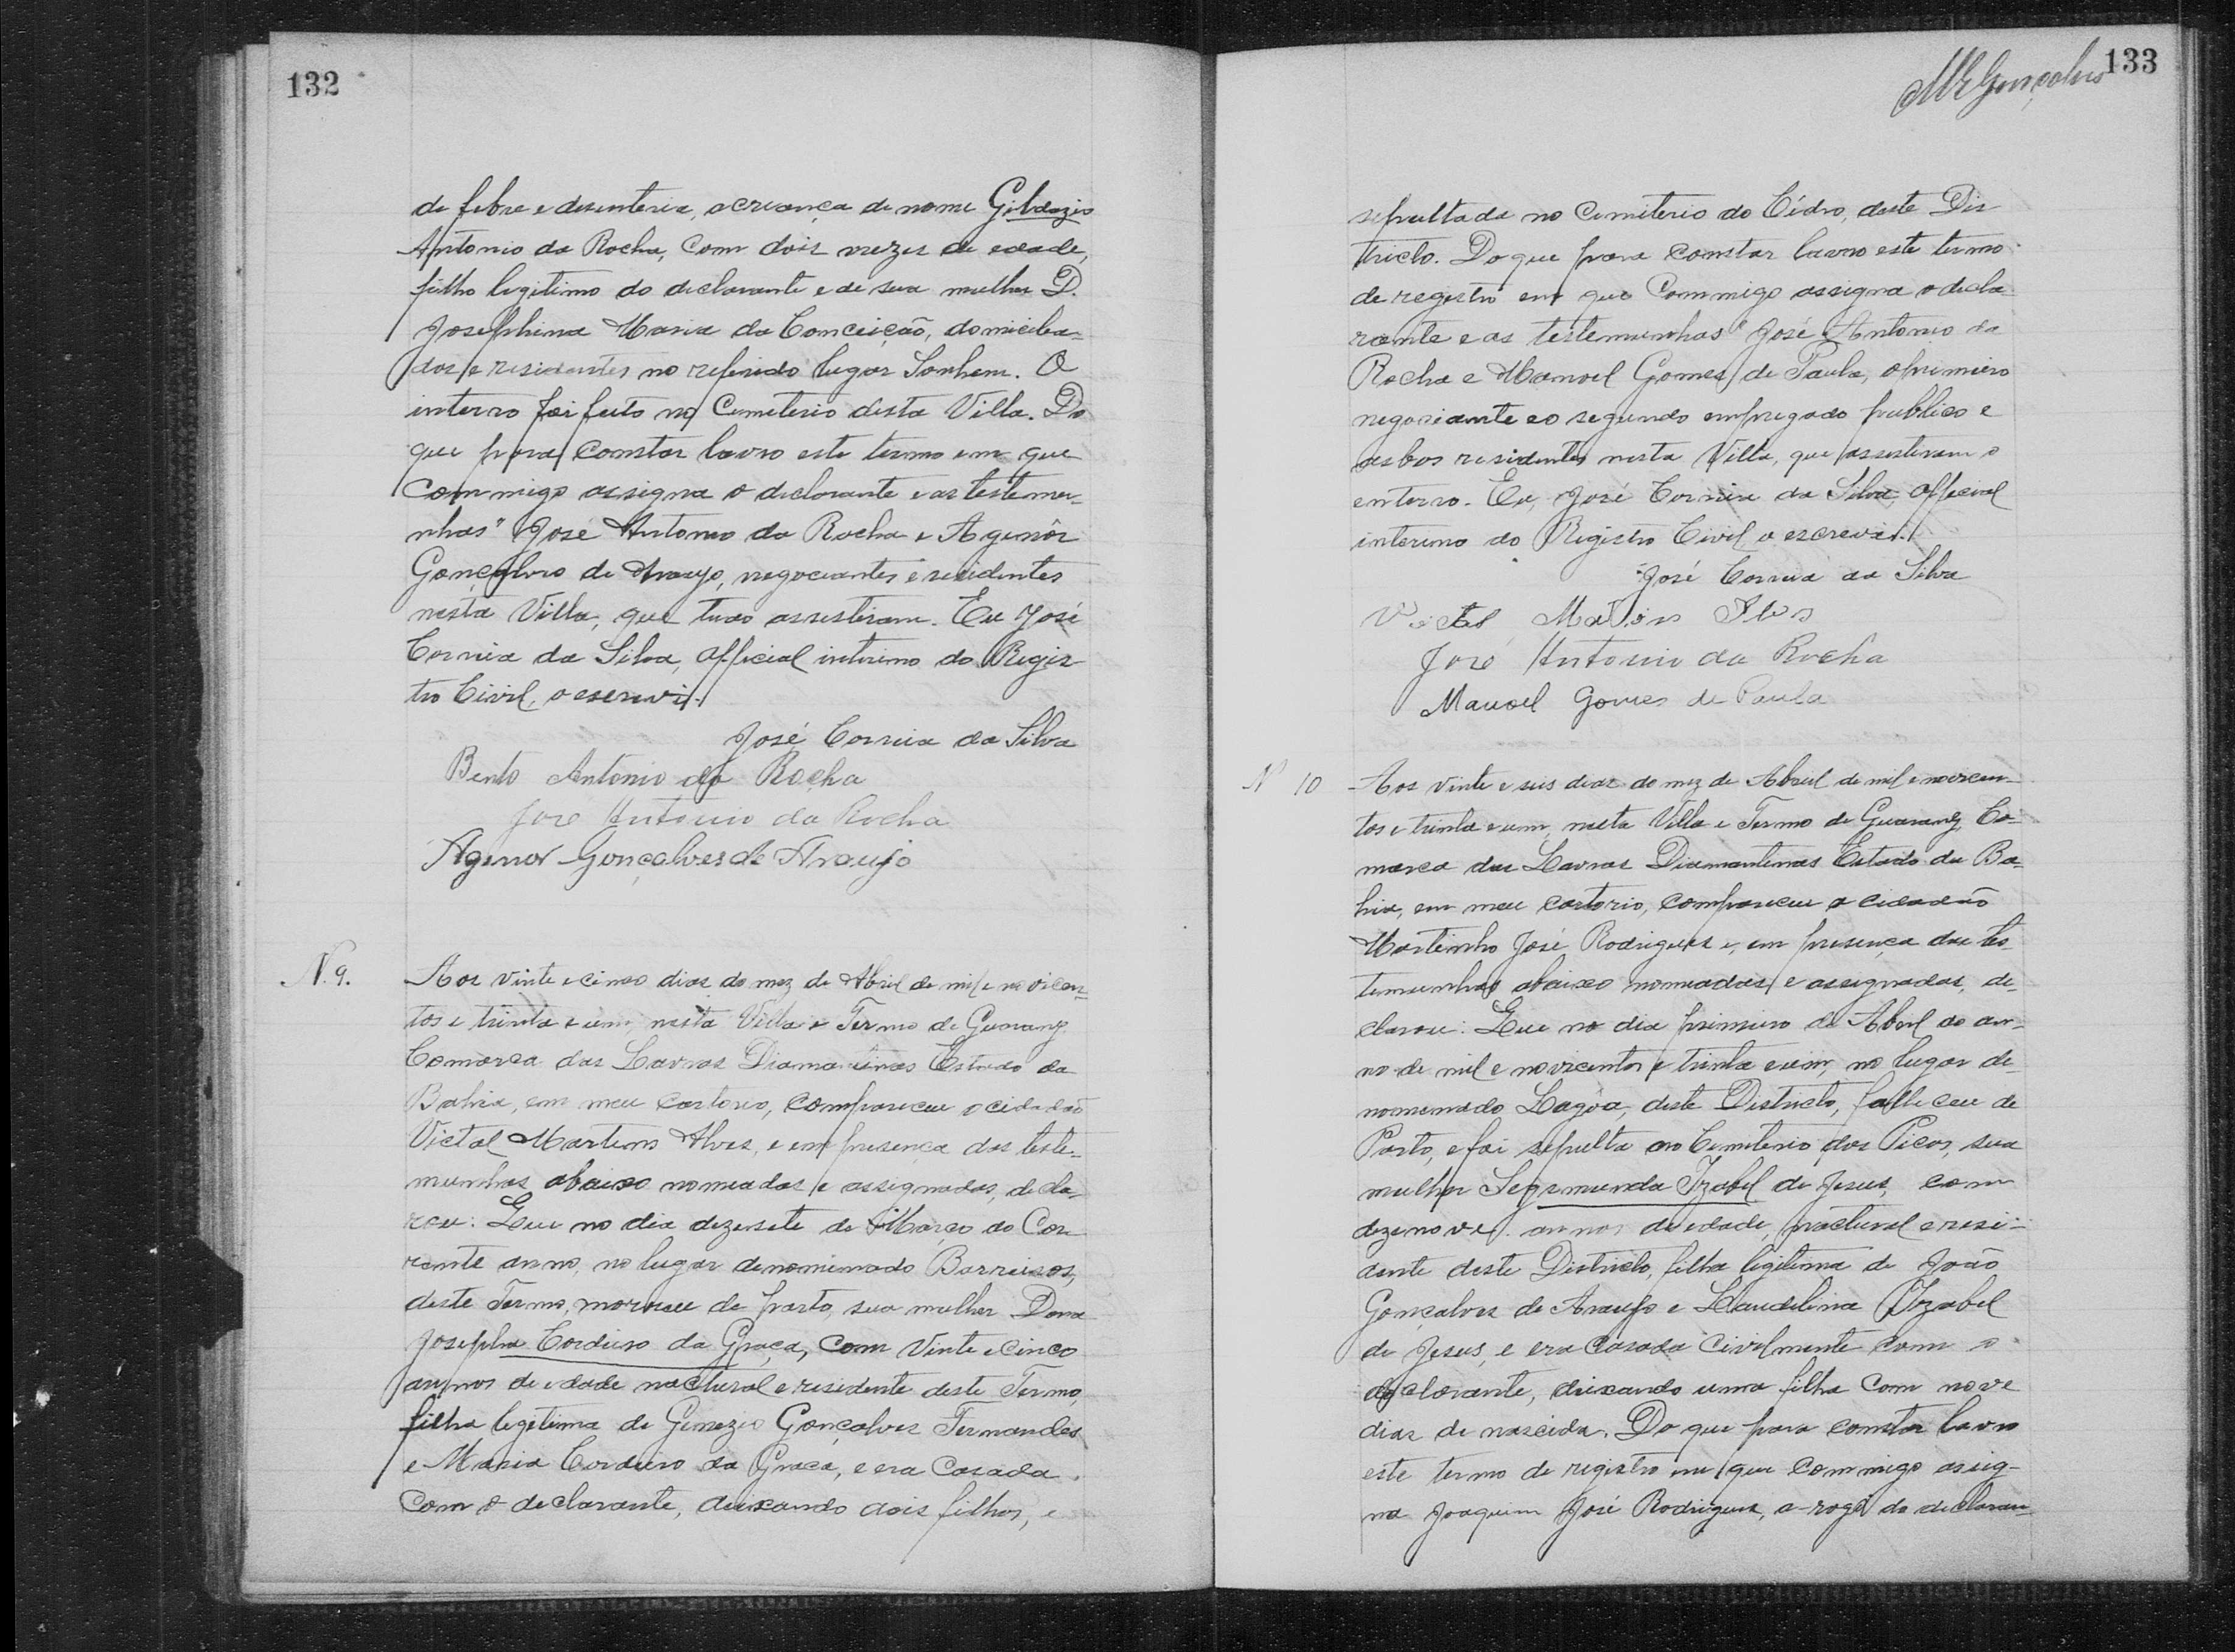 132
de febre e desenteria, a creança de nome Gildazio
Antonio da Rocha, com dois mezes de edade,
filho legitimo do declarante e de sua mulher D.
Josephina Maria da Conceição, domicilia-
dos e residentes no referido lugar Sonhem. O
interro foi feito no Cemeterio desta Villa. Do
que para constar lavro este termo em que
commigo assigna o declarante e as testemu-
nhas" José Antonio da Rocha e Agenôr
Gonçalves de Araujo, negociantes e residentes
nesta Villa, que tudo assistiram. Eu José
Correia da Silva, official interino do Regis-
tro Civil, o escrevi.
José Correia da Silva
Bento Antonio da Rocha
José Antonio da Rocha
Agenor Gonçalves de Araujo
N. 9.
Aos vinte e cinco dias do mez de Abril de mil e novicen-
tos e trinta e um, nesta Villa e Termo de Guarany
Comarca das Lavras Diamantinas Estado da
Bahia, em meu cartorio, compareceu o cidadão
Victal Martins Alves, e em presença das teste-
munhas abaixo nomeadas e assignadas, decla-
rou: Que no dia dezesete de Março do Cor-
rente anno, no lugar denominado Barreiros,
deste Termo, morreu de parto, sua mulher Dona
Josepha Cordeiro da Graça, com vinte e cinco
annos de edade nactural e residente deste Termo,
filha legitima de Genezio Gonçalves Fernandes
e Maria Cordeiro da Graça, e era Casada
com o declarante, deixando dois filhos, e
133
MRGonçalves
sepultada no Cemiterio do Cédro, deste Dis
tricto. Do que para constar lavro este termo
de registro em que Commigo assigna o decla-
rante e as testemunhas" José Antonio da
Rocha e Manoel Gomes de Paula, o primeiro
negociante e o segundo empregado publico e
asbos residentes nesta Villa, que assistiram o
enterro. Eu, José Correia da Silva, official
interino do Registro Civil o escrevi.
José Correia da Silva
Victal Martins Alves
José Antonio da Rocha
Manoel Gomes de Paula
Nº 10
Aos vinte e seis dias do mez de Abril de mil e novicen-
tos e trinta e um, nesta Villa e Termo de Guarany, Co-
marca das Lavras Diamantinas Estado da Ba-
hia, em meu cartorio, compareceu o cidadão
Martinho José Rodrigues e, em presença das tes-
temunhas abaixo nomeadas e assignadas, de-
clarou: Que no dia primeiro de Abril do an-
no de mil e novicentos e trinta e um, no lugar de-
nominado Lagôa, deste Districto, falleceu de
Parto, e foi sepulta no Cemiterio dos Picos, sua
mulher Segismunda Izabel de Jesus, com
dezenove annos de edade, nactural e resi-
dente deste Districto, filha legitima de João
Gonçalves de Araujo e Laudelina Izabel
de Jesus, e era Casada Civilmente com o
declarante, deixando uma filha com nove
dias de nascida. Do que para constar lavro
este termo de registro em que commigo assig-
na Joaquim José Rodrigues, a rogo do declaran-